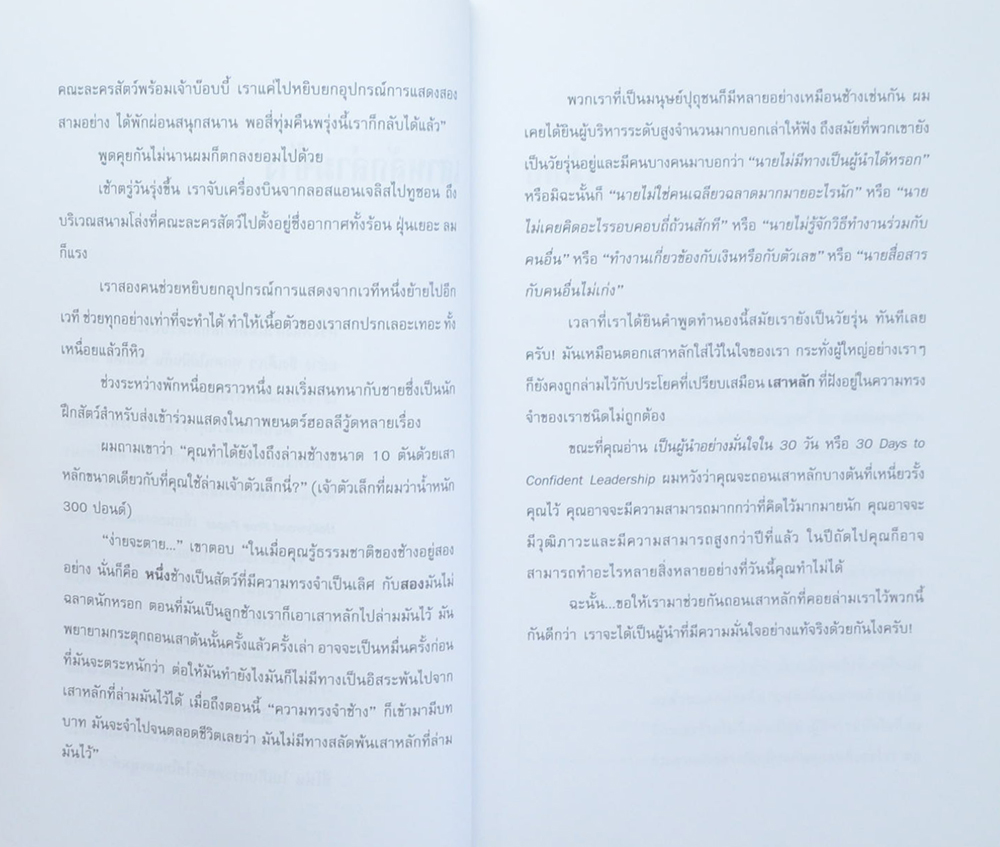 คณะละครสัตว์พร้อมเจ้าบ๊อบบี้ เราแค่ไปหยิบยกอุปกรณ์การแสดงสอง
สามอย่าง ได้พักผ่อนสนุกสนาน พอสี่ทุ่มคืนพรุ่งนี้เราก็กลับได้แล้ว”
พูดคุยกันไม่นานผมก็ตกลงยอมไปด้วย
เช้าตรู่วันรุ่งขึ้น เราจับเครื่องบินจากลอสแอนเจลิสไปทูซอน ถึง
บริเวณสนามโล่งที่คณะละครสัตว์ไปตั้งอยู่ซึ่งอากาศทั้งร้อน ฝุ่นเยอะ ลม
ก็แรง
เราสองคนช่วยหยิบยกอุปกรณ์การแสดงจากเวทีหนึ่งย้ายไปอีก
เวที ช่วยทุกอย่างเท่าที่จะทำได้ ทำให้เนื้อตัวของเราสกปรกเลอะเทอะ ทั้ง
เหนื่อยแล้วก็หิว
ช่วงระหว่างพักหนื่อยคราวหนึ่ง ผมเริ่มสนทนากับชายซึ่งเป็นนัก
ฝึกสัตว์สำหรับส่งเข้าร่วมแสดงในภาพยนตร์ฮอลลีวู้ดหลายเรื่อง
ผมถามเขาว่า “คุณทำได้ยังไงถึงล่ามช้างขนาด 10 ตันด้วยเสา
หลักขนาดเดียวกับที่คุณใช้ล่ามเจ้าตัวเล็กนี่?” (เจ้าตัวเล็กที่ผมว่าน้ำหนัก
300 ปอนด์)
“ง่ายจะตาย...” เขาตอบ “ในเมื่อคุณรู้ธรรมชาติของช้างอยู่สอง
อย่าง นั่นก็คือ หนึ่งช้างเป็นสัตว์ที่มีความทรงจำเป็นเลิศ กับสองมันไม่
ฉลาดนักหรอก ตอนที่มันเป็นลูกช้างเราก็เอาเสาหลักไปล่ามมันไว้ มัน
พยายามกระตุกถอนเสาต้นนั้นครั้งแล้วครั้งเล่า อาจจะเป็นหมื่นครั้งก่อน
ที่มันจะตระหนักว่า ต่อให้มันทำยังไงมันก็ไม่มีทางเป็นอิสระพ้นไปจาก
เสาหลักที่ล่ามมันไว้ได้ เมื่อถึงตอนนี้ “ความทรงจำช้าง” ก็เข้ามามีบท
บาท มันจะจำไปจนตลอดชีวิตเลยว่า มันไม่มีทางสลัดพ้นเสาหลักที่ล่าม
มันไว้”
พวกเราที่เป็นมนุษย์ปุถุชนก็มีหลายอย่างเหมือนช้างเช่นกัน ผม
เคยได้ยินผู้บริหารระดับสูงจำนวนมากบอกเล่าให้ฟัง ถึงสมัยที่พวกเขายัง
เป็นวัยรุ่นอยู่และมีคนบางคนมาบอกว่า “นายไม่มีทางเป็นผู้นำได้หรอก”
หรือมิฉะนั้นก็ “นายไม่ใช่คนเฉลียวฉลาดมากมายอะไรนัก” หรือ “นาย
ไม่เคยคิดอะไรรอบคอบถี่ถ้วนสักที” หรือ “นายไม่รู้จักวิธีทำงานร่วมกับ
คนอื่น” หรือ “ทำงานเกี่ยวข้องกับเงินหรือกับตัวเลข” หรือ “นายสื่อสาร
กับคนอื่นไม่เก่ง”
เวลาที่เราได้ยินคำพูดทำนองนี้สมัยเรายังเป็นวัยรุ่น ทันทีเลย
ครับ! มันเหมือนตอกเสาหลักใส่ไว้ในใจของเรา กระทั่งผู้ใหญ่อย่างเราๆ
ก็ยังคงถูกล่ามไว้กับประโยคที่เปรียบเสมือน เสาหลัก ที่ฝังอยู่ในความทรง
จำของเราชนิดไม่ถูกต้อง
ขณะที่คุณอ่าน เป็นผู้นำอย่างมั่นใจใน 30 วัน หรือ 30 Days to
Confident Leadership ผมหวังว่าคุณจะถอนเสาหลักบางต้นที่เหนี่ยวรั้ง
คุณไว้ คุณอาจจะมีความสามารถมากกว่าที่คิดไว้มากมายนัก คุณอาจจะ
มีวุฒิภาวะและมีความสามารถสูงกว่าปีที่แล้ว ในปีถัดไปคุณก็อาจ
สามารถทำอะไรหลายสิ่งหลายอย่างที่วันนี้คุณทำไม่ได้
ฉะนั้น...ขอให้เรามาช่วยกันถอนเสาหลักที่คอยล่ามเราไว้พวกนี้
กันดีกว่า เราจะได้เป็นผู้นำที่มีความมั่นใจอย่างแท้จริงด้วยกันไงครับ!